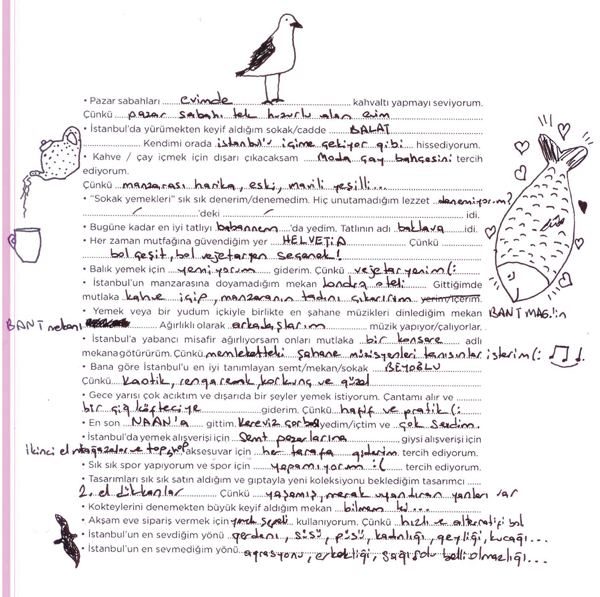 • Pazar sabahları evimde kahvaltı yapmayı seviyorum.
Çünkü pazar sabahı tek huzurlu olan evim
• İstanbul'da yürümekten keyif aldığım sokak/cadde BALAT
Kendimi orada istanbul'u içime çekiyor gibi hissediyorum.
• Kahve / çay içmek için dışarı çıkacaksam Moda çay bahçesini tercih
ediyorum.
Çünkü manzarası harika, eski, mavili yeşilli...
• "Sokak yemekleri" sık sık denerim/denemedim. Hiç unutamadığım lezzet denemiyorum?
'deki idi.
• Bugüne kadar en iyi tatlıyı babannem 'da yedim. Tatlının adı baklava idi.
• Her zaman mutfağına güvendiğim yer HELVETİA Çünkü
bol çeşit, bol vejetaryen seçenek!
• Balık yemek için yemiyorum giderim. Çünkü vejetaryenim (:
• İstanbul'un manzarasına doyamadığım mekan londra oteli Gittiğimde
mutlaka kahve içip, manzaranın tadını çıkarırım yerim/içerim.
• Yemek veya bir yudum içkiyle birlikte en şahane müzikleri dinlediğim mekan BANT MAG.'in
BANT mekanı Ağırlıklı olarak arkadaşlarım müzik yapıyor/çalıyorlar.
• İstanbul'a yabancı misafir ağırlıyorsam onları mutlaka bir konsere adlı
mekana götürürüm. Çünkü memleketteki şahane müzisyenleri tanısınlar isterim (:
• Bana göre İstanbul'u en iyi tanımlayan semt/mekan/sokak BEYOĞLU
Çünkü Kaotik, rengarenk, korkunç ve güzel
• Gece yarısı çok acıktım ve dışarıda bir şeyler yemek istiyorum. Çantamı alır ve
bir çiğ köfteciye giderim. Çünkü hafif ve pratik (:
• En son NAAN'a gittim. Kereviz çorbası yedim/içtim ve çok sevdim.
• İstanbul'da yemek alışverişi için semt pazarlarına giysi alışverişi için
ikinci el mağazalar ve top shop aksesuvar için her tarafa giderim. tercih ederim.
• Sık sık spor yapıyorum ve spor için yapamıyorum :( tercih ediyorum.
• Tasarımları sık sık satın aldığım ve gıptayla yeni koleksiyonu beklediğim tasarımcı
2. el dükkanlar Çünkü yaşamış, merak uyandıran yanları var
• Kokteylerini denemekten büyük keyif aldığım mekan bilmem ki...
• Akşam eve sipariş vermek için yemek sepeti kullanıyorum. Çünkü hızlı ve alternatifi bol
• İstanbul'un en sevdiğim yönü gerdanı, süsü, püsü, kadınlığı, geyliği, kucağı...
• İstanbul'un en sevmediğim yönü agrasyonu, erkekliği, sağı solu belli olmazlığı...